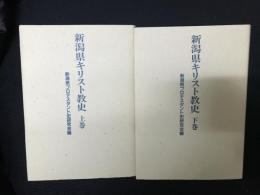 新潟県キリスト教史 上巻
新潟県プロテスタント史研究会編
新潟県キリスト教史 下巻
新潟県プロテスタント史研究会編